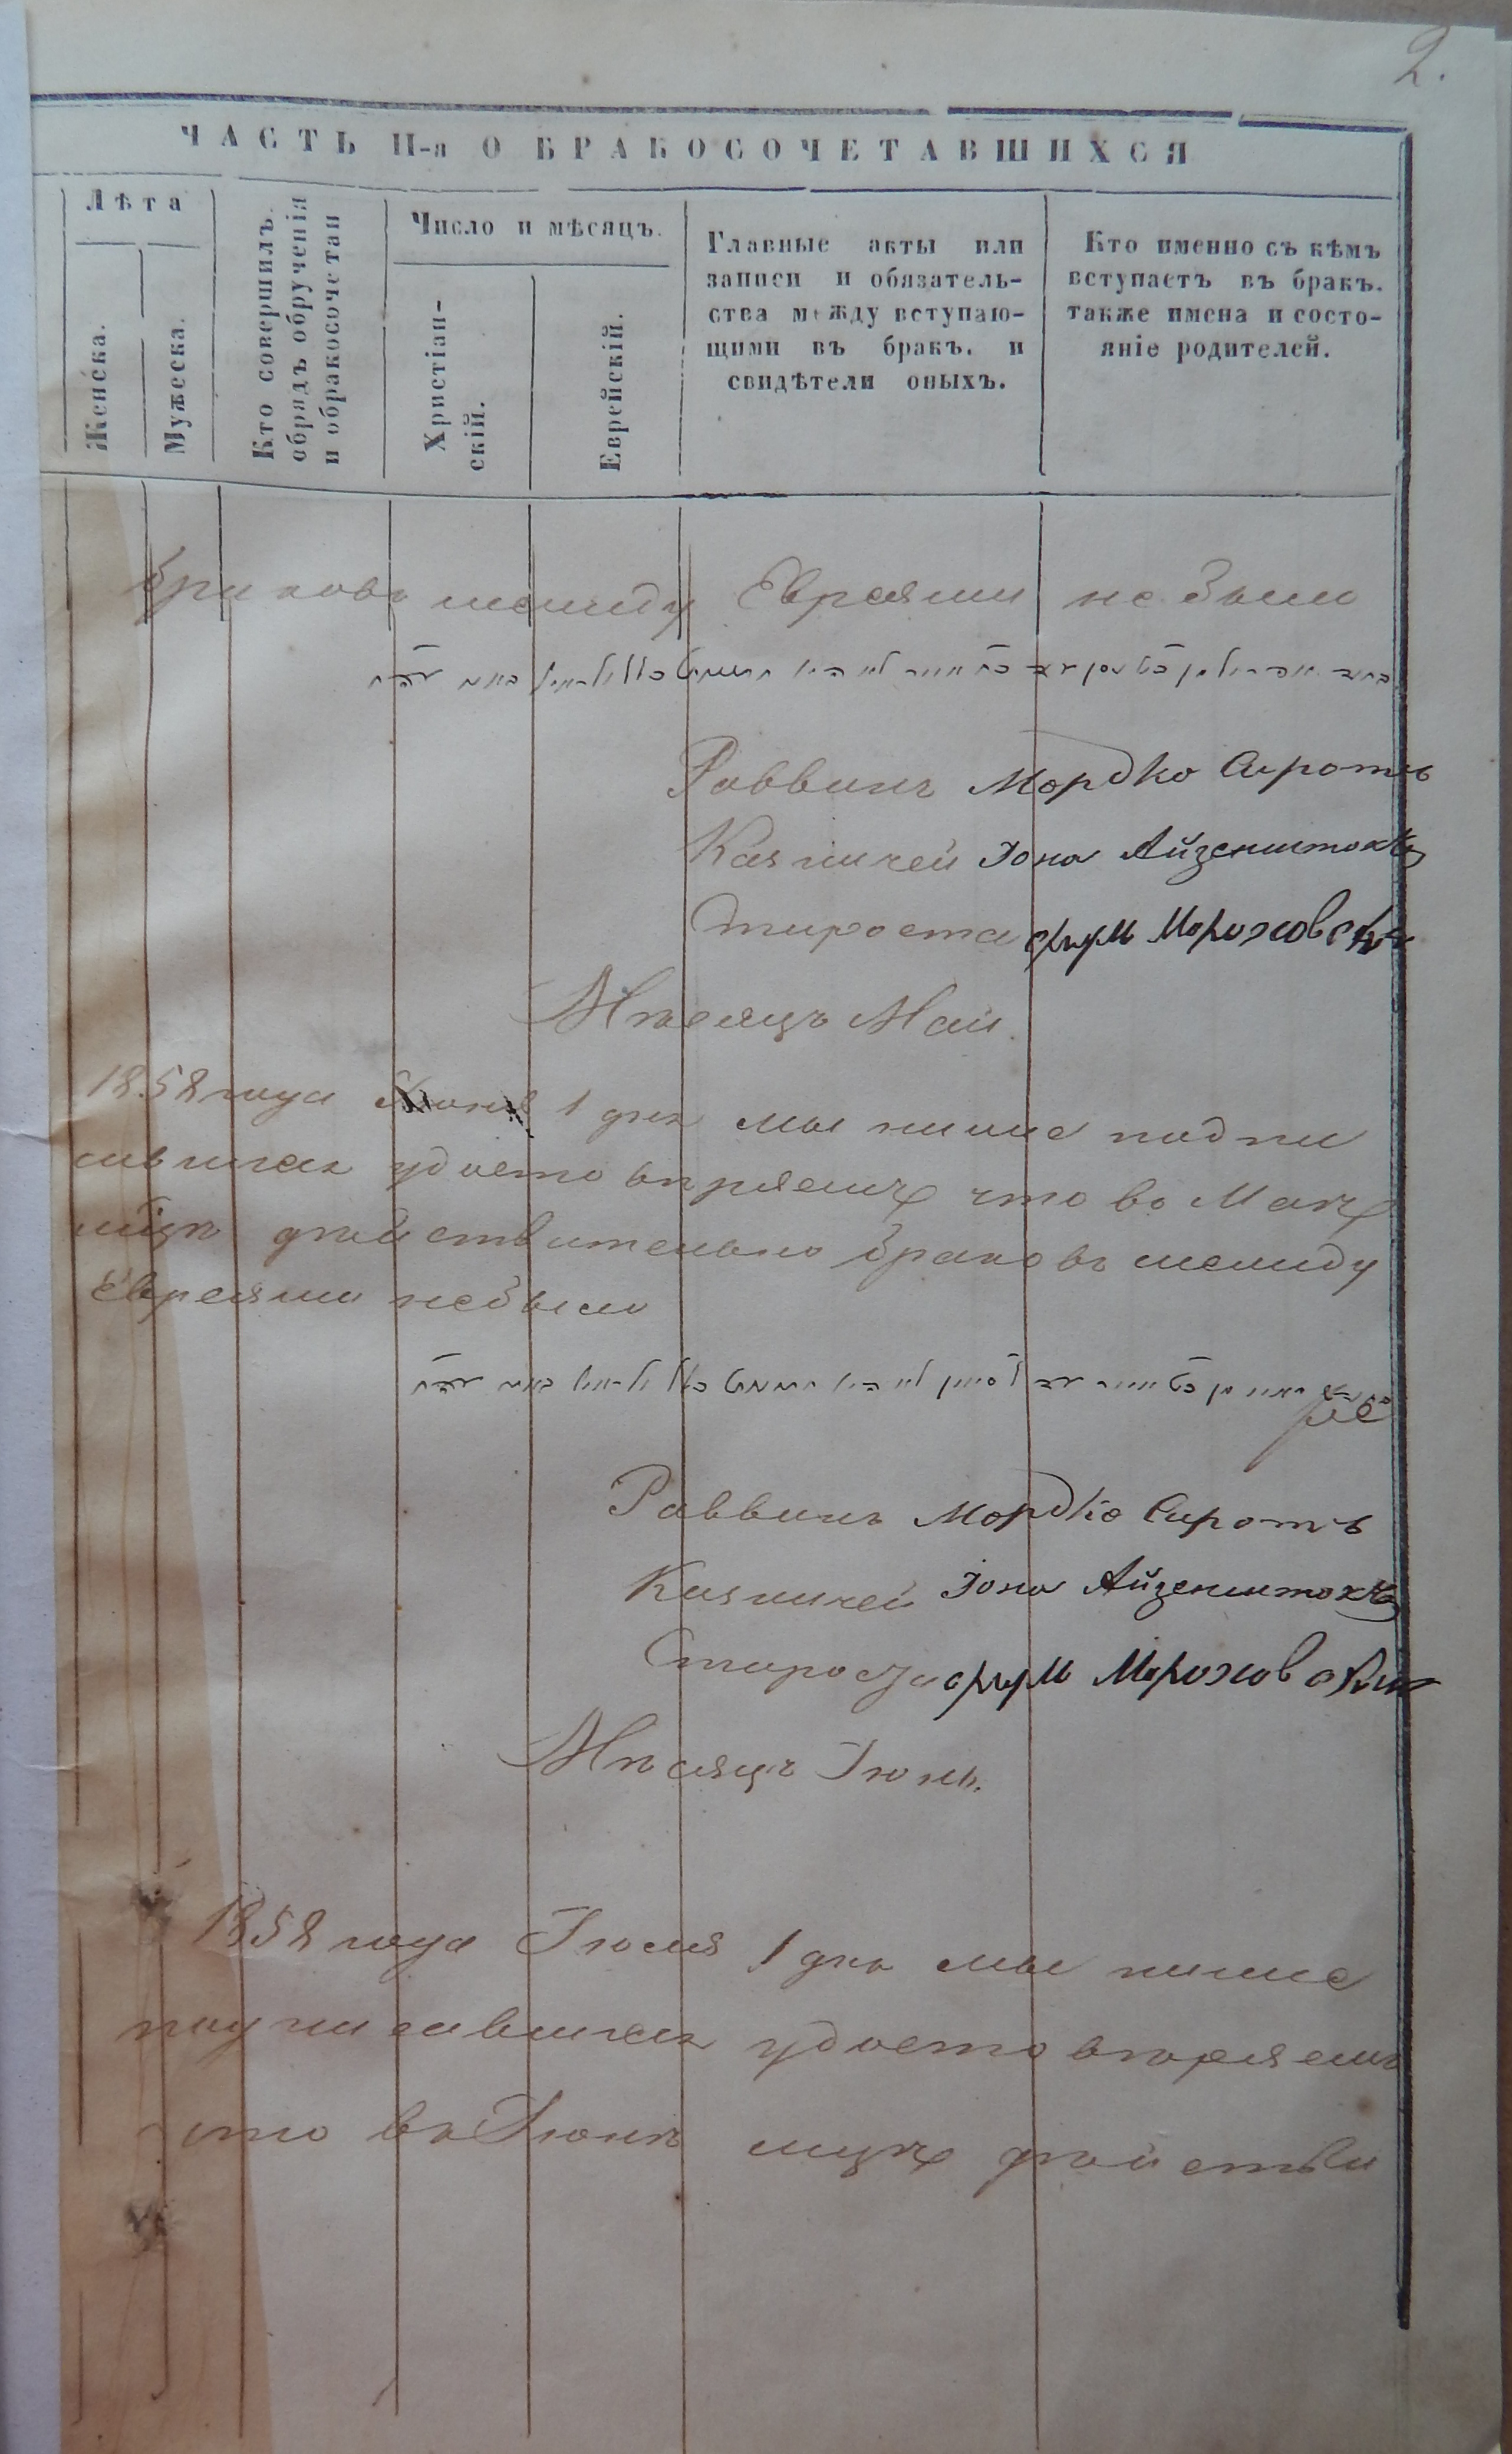 2.
ЧАСТЬ II-я О БРАКОСОЧЕТАВШИХСЯ
Лѣта
Женска.
Мужеска.
Кто совершилъ
обрядъ обрученія
и бракосочетан
Число и мѣсяцъ.
Христіан-
скій.
Еврейскій.
Главные акты или
записи и обязатель-
ства между вступаю-
щими въ бракъ. и
свидѣтели оныхъ.
Кто именно съ кѣмъ
вступаетъ въ бракъ.
также имена и состо-
яніе родителей.
браковъ между Евреями не было
Раввинъ Мордко Сиротъ
Казначей Іона Айзенштокъ
Староста Мороховскій
Мѣсяцъ Май.
1858 года Іюня 1 дня мы ниже подпи
савшіеся удостовѣряемъ что въ Маѣ
мцѣ дѣйствительно браковъ между
Евреями небыло
Раввинъ Мордко Сиротъ
Казначей Іона Айзенштокъ
Староста Мороховскій
Мѣсяцъ Іюнь.
1858 года Іюля 1 дня мы ниже
подписавшіеся удостовѣряемъ
что въ Іюнѣ мцѣ дѣйстви